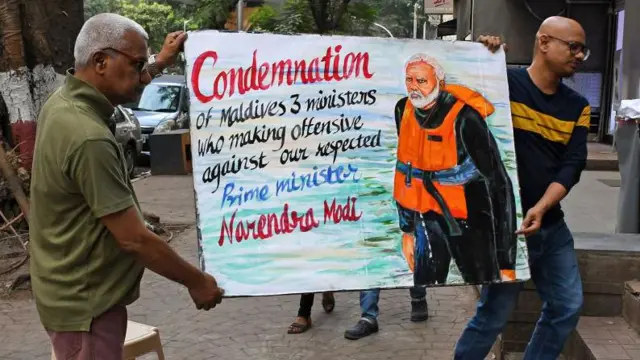 Condemnation
of Maldives 3 ministers
who making offensive
against our respected
Prime minister
Narendra Modi